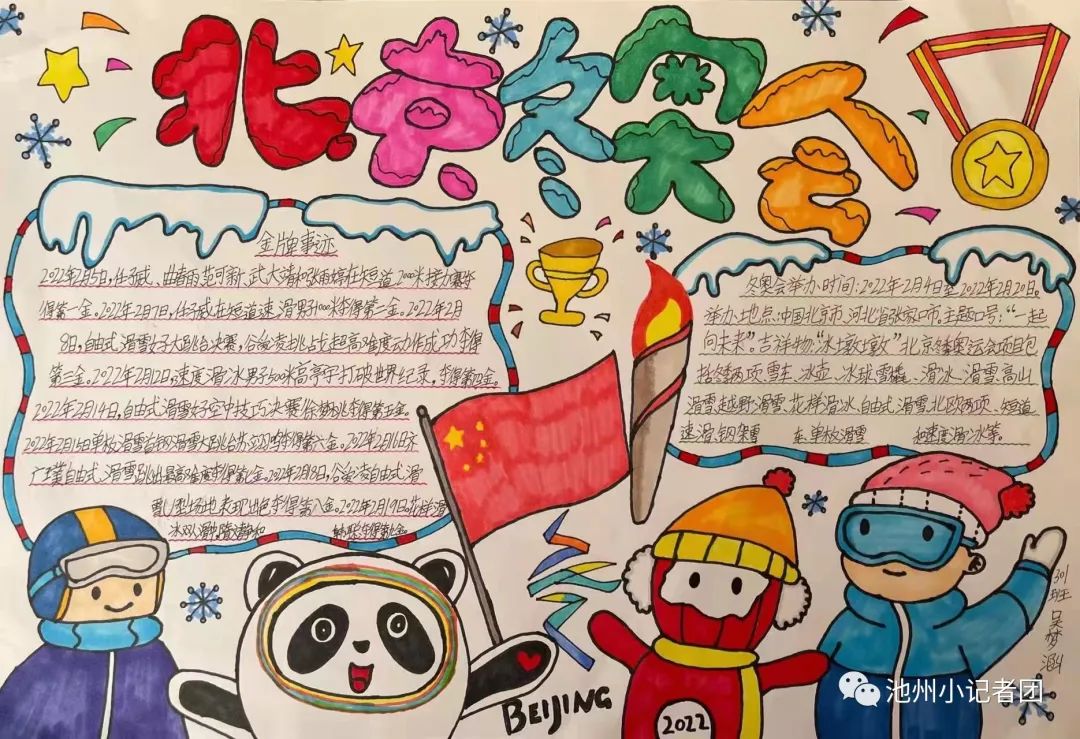 北京冬奥会
金牌事迹
2022年2月5日,任子威、曲春雨、范可新、武大靖和张雨婷在短道2000米接力赛夺
得第一金。2022年2月7日,任子威在短道速滑男子1000米夺得第二金。2022年2月
8日,自由式滑雪女子大跳台决赛,谷爱凌挑战超高难度动作成功夺得
第三金。2022年2月12日,速度滑冰男子500米高亭宇打破世界纪录,夺得第四金。
2022年2月14日,自由式滑雪女子空中技巧决赛徐梦桃夺得第五金。
2022年2月15日单板滑雪 滑雪大跳台苏翊鸣夺得第六金。2022年2月16日齐
广璞自由式滑雪 高难度夺得第七金。2022年2月18日,谷爱凌自由式滑
雪U型场地表现出色夺得第八金。2022年2月19日花样滑
冰双人滑 隋文静和 韩聪夺得第九金。
冬奥会举办时间:2022年2月4日至2022年2月20日。
举办地点:中国北京市,河北省张家口市。主题口号:“一起
向未来”。吉祥物:“冰墩墩”北京冬奥运会项目包
括冬两项、雪车、冰壶、冰球、雪橇、滑冰、滑雪、高山
滑雪、越野滑雪、花样滑冰、自由式滑雪、北欧两项、短道
速滑、钢架雪 车、单板滑雪 和速度滑冰等。
BEIJING
2022
301班 吴梦涵
池州小记者团